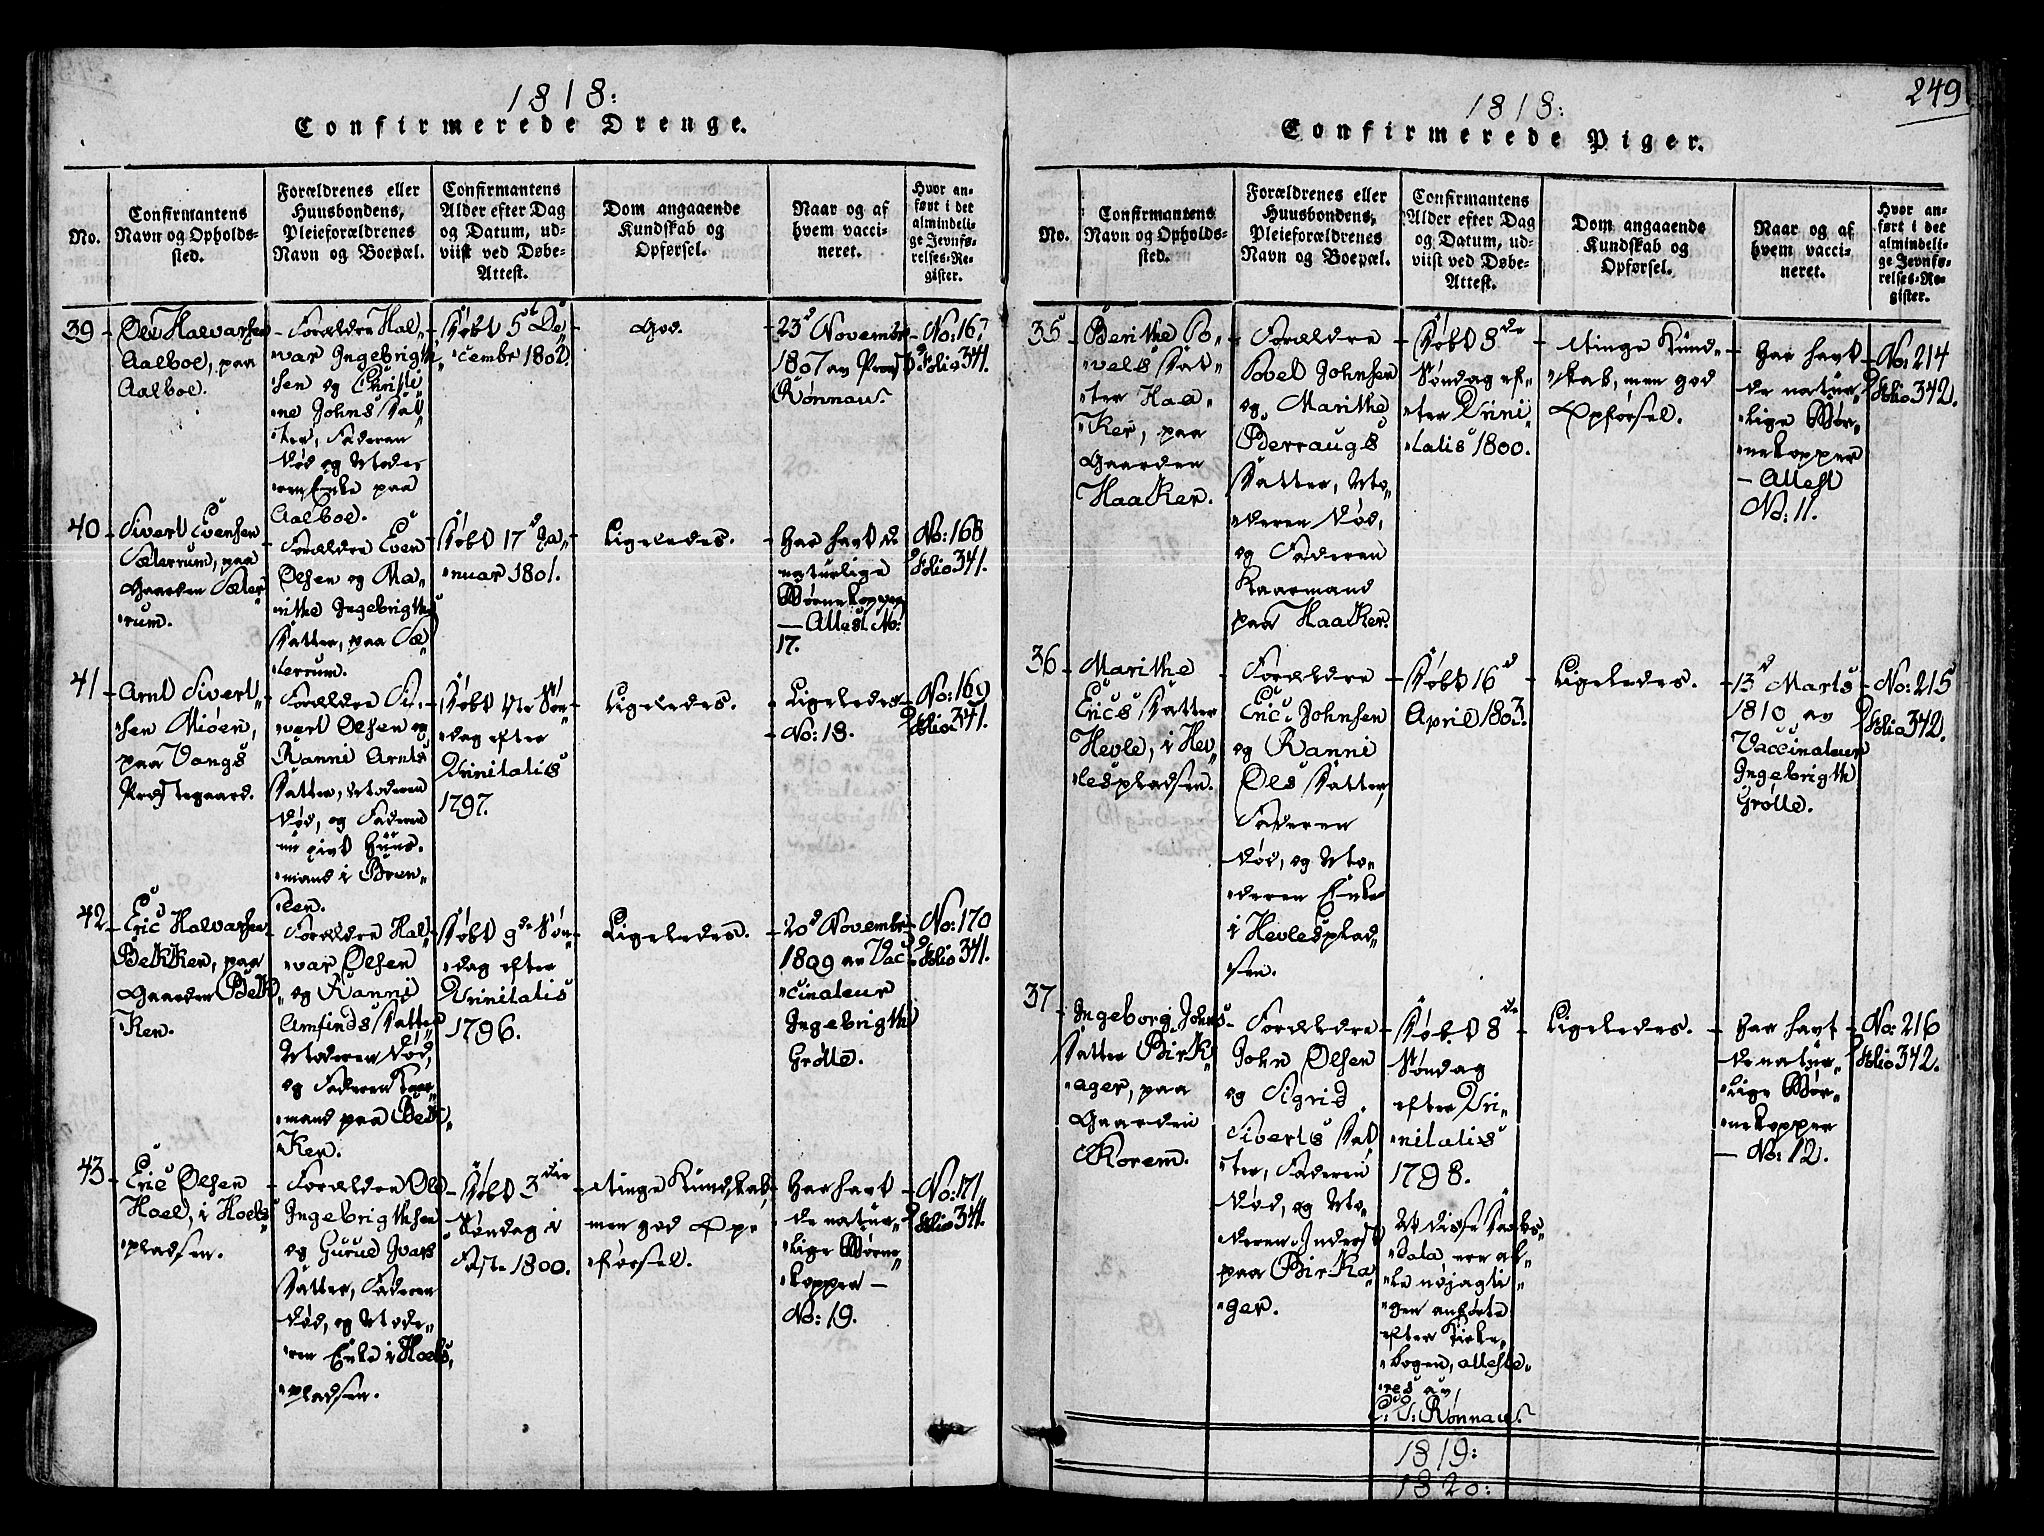 1818:
Confirmerede Drenge.
No.
Confirmantens
Navn og Opholds-
sted.
Forældrenes eller
Huusbondens,
Pleieforældrenes
Navn og Boepæl.
Confirmantens
Alder efter Dag
og Datum, ud-
viist ved Døbe-
Attest.
Dom angaaende
Kundskab og
Opførsel.
Naar og af
hvem vacci-
neret.
Hvor an-
ført i det
almindeli-
ge Jevnfø-
relses-Re-
gister.
39
Ole Halvarsen
Aalboe, paa
Aalboe.
Forældre Hal„
„var Ingebrigth„
„sen og Christi„
„ne Johns Dat„
„ter, Faderen
død og Mode„
„ren Enke paa
Aalboe.
Døbt 5t De„
„cembr 1802.
God.
23d Novembr
1807 av Provst
Rønnau.
No: 167
Folio 341.
40
Sivert Evensen
Sæterrum, paa
Gaarden Sæter„
„rum.
Forældre Even
Olsen og Ma„
„rithe Ingebrigths
Datter, paa Sæ„
„terrum.
Døbt 17d Ja„
„nuar 1801.
Ligeledes.
Har havt de
naturlige
Børnekopper
— Attest No:
17.
No: 168
Folio 341.
41
Arnt Sivert„
„sen Mioen,
paa Vangs
Præstegaard.
Forældre Si„
„vert Olsen og
Ranni Arnts
Datter, Moderen
død, og Faderen
nu givt Huus„
„mand i Bren„
„den.
Døbt 4te Søn„
„dag efter
Trinitatis
1797.
Ligeledes.
Ligeledes
No: 18.
No: 169
Folio 341.
42
Eric Halvarsen
Bekken, paa
Gaarden Bek„
„ken.
Forældre Hal„
„var Olsen
og Ranni
Amfinds Datter
Moderen død,
og Faderen Kaar„
„mand paa Bek„
„ken.
Døbt 9de Søn„
„dag efter
Trinitatis
1796.
Ligeledes.
20d Novembr
1809 av Vac„
„cinateur
Ingebrigth
Grøtte.
No: 170
Folio 341.
43
Eric Olsen
Hoel, i Hoels„
„pladsen.
Forældre Ole
Ingebrigthsen
og Gurue Ivars
Datter, Faderen
død, og Mode„
„ren Enke i Hoels„
„pladsen.
Døbt 3die
Søndag i
Faste 1800.
Ringe Kundskab,
men god Op„
„førsel.
Har havt
de natur„
„lige Børne„
„kopper —
No: 19.
No: 171
Folio 341.
249
1818:
Confirmerede Piger.
No.
Confirmantens
Navn og Opholds-
sted.
Forældrenes eller
Huusbondens,
Pleieforældrenes
Navn og Boepæl.
Confirmantens
Alder efter Dag
og Datum, ud-
viist ved Døbe-
Attest.
Dom angaaende
Kundskab og
Opførsel.
Naar og af
hvem vacci-
neret.
Hvor an-
ført i det
almindeli-
ge Jevnfø-
relses-Re-
gister.
35
Berithe Po„
„vels Dat„
„ter Haa„
„ker, paa
Gaarden
Haaker.
Forældre
Povel Johnsen
og Marithe
Pderraugs
Datter, Mo„
„deren død,
og Faderen
Kaarmand
paa Haaker.
Døbt 8de
Søndag ef„
„ter Trini„
„tatis 1800.
Ringe Kund„
„skab, men god
Opførsel.
Har havt
de natur„
„lige Bør„
„nekopper
— Attest
No: 11.
No: 214
Folio 342.
36
Marithe
Erics Datter
Hevle, i Hev„
„lespladsen.
Forældre
Eric Johnsen
og Ranni
Ols Datter,
Faderen
død, og Mo„
„deren Enke
i Hevlesplad„
„sen.
Døbt 16d
April 1803.
Ligeledes.
13d Marts
1810, av
Vaccinateur
Ingebrigth
Grøtte.
No: 215
Folio 342.
37
Ingeborg Johns
Datter Birk„
„ager, paa
Gaarden
Korem.
Forældre
John Olsen
og Sigrid
Siverts Dat„
„ter, Faderen
død, og Mo„
„deren Inderst
paa Birka„
„ger.
Døbt 8de
Søndag
efter Tri„
„nitatis
1798.
At disse Daabs„
„data ere al„
„le nøjagti„
„gen anførte
efter Kirke„
„bogen, atteste„
„res av
Rønnau.
Ligeledes.
Har havt
de natur„
„lige Bør„
„nekopper
— No: 12.
No: 216
Folio 342.
1819:
1820: